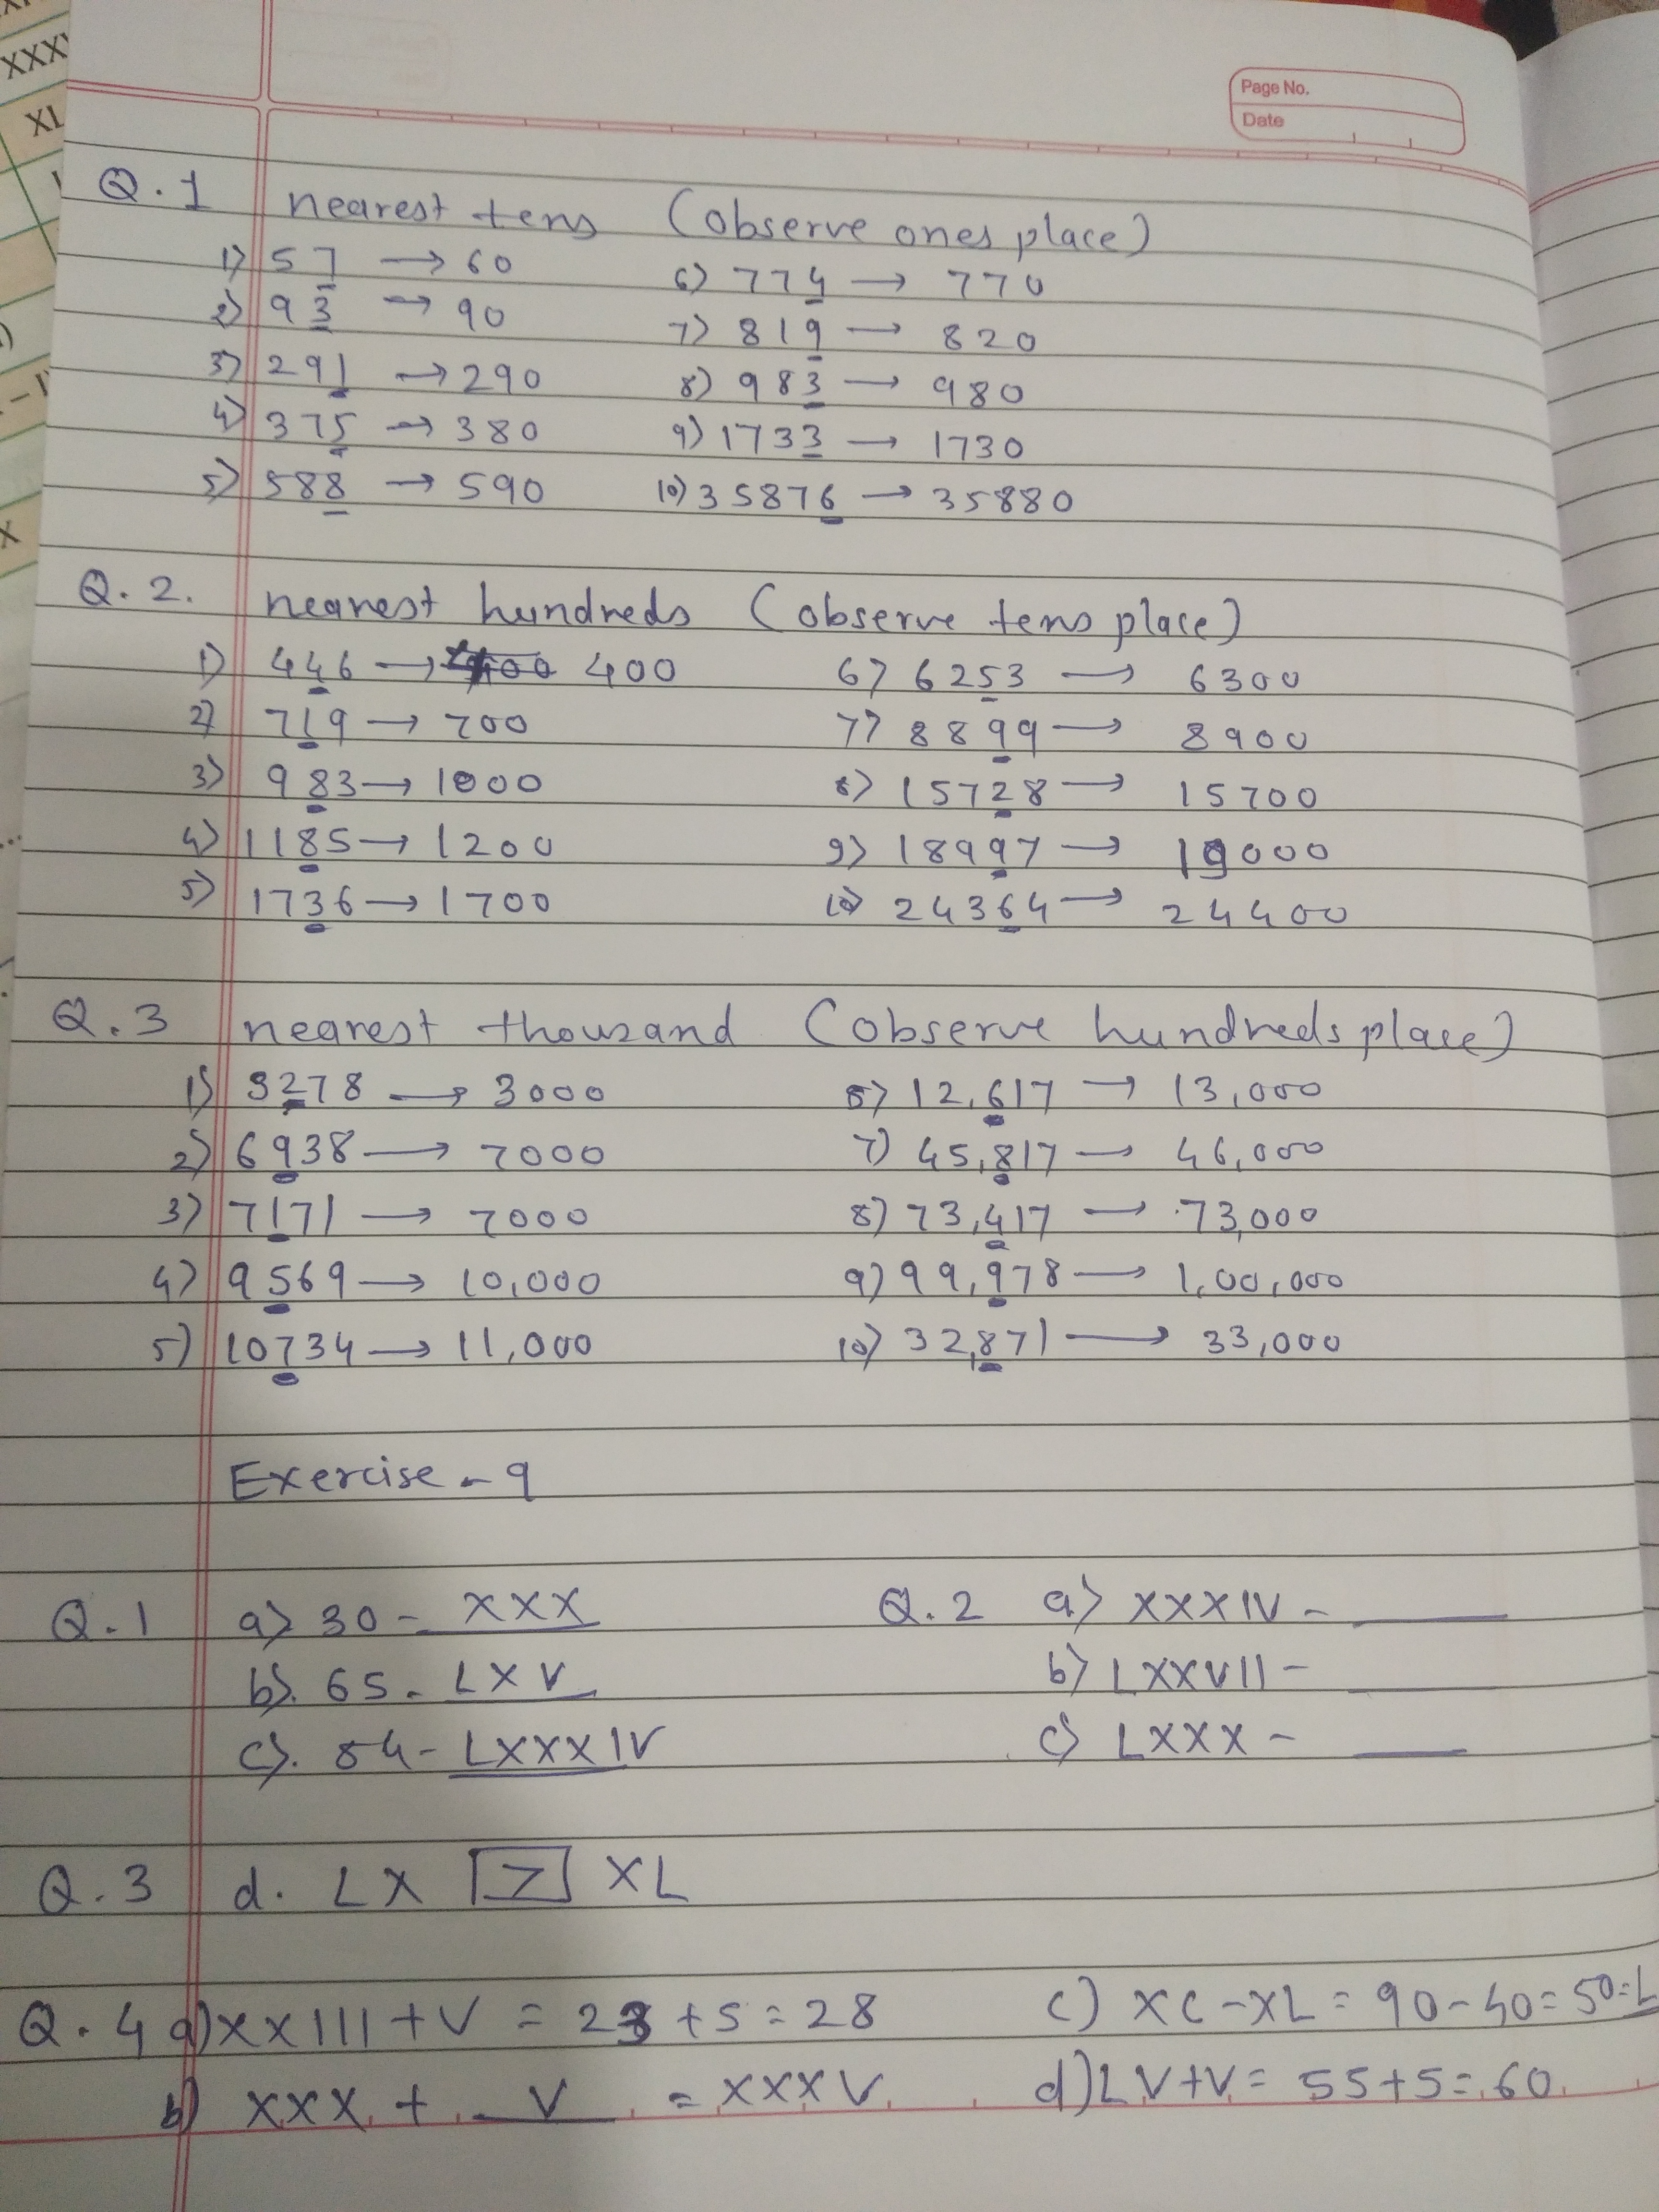 XXX
XL
Page No.
Date
Q.1 nearest tens (observe ones place)
1) 57 → 60 6) 774 → 770
2) 93 → 90 7) 819 → 820
3) 291 → 290 8) 983 → 980
4) 375 → 380 9) 1733 → 1730
5) 588 → 590 10) 35876 → 35880
Q.2. nearest hundreds (observe tens place)
1) 446 → 400 6) 6253 → 6300
2) 719 → 700 7) 8899 → 8900
3) 983 → 1000 8) 15728 → 15700
4) 1185 → 1200 9) 18997 → 19000
5) 1736 → 1700 10) 24364 → 24400
Q.3 nearest thousand (observe hundreds place)
1) 3278 → 3000 6) 12,617 → 13,000
2) 6938 → 7000 7) 45,817 → 46,000
3) 7171 → 7000 8) 73,417 → 73,000
4) 9569 → 10,000 9) 99,978 → 1,00,000
5) 10734 → 11,000 10) 32,871 → 33,000
Exercise - 9
Q.1 a) 30 - XXX Q.2 a) XXXIV - ____
b). 65 - LXV b) LXXVII - ____
c). 84 - LXXXIV c) LXXX - ____
Q.3 d. LX > XL
Q.4 a) XXIII + V = 23 + 5 = 28 c) XC - XL = 90 - 40 = 50 = L
b) XXX + V = XXXV d) LV + V = 55 + 5 = 60